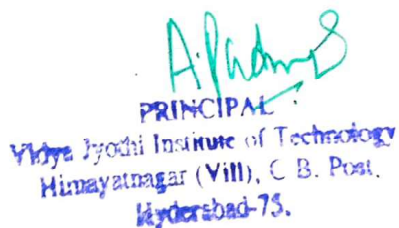 A. Padma
PRINCIPAL
Vidya Jyothi Institute of Technology
Himayatnagar (Vill), C B. Post.
Hyderabad-75.